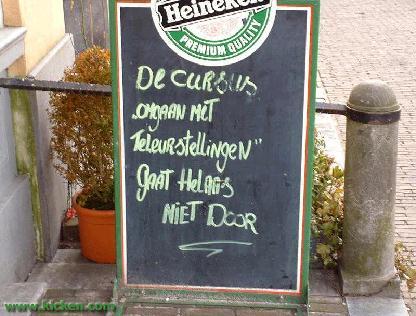 Heineken
PREMIUM QUALITY
De CURSUS
„OMGAAN MET
TELEURSTELLINGEN"
GAAT HELAAS
NIET DOOR
www.kicken.com